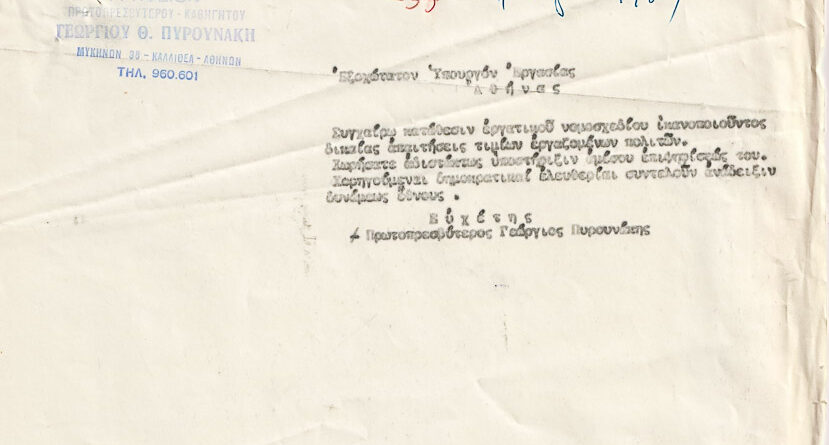 ΠΡΩΤΟΠΡΕΣΒΥΤΕΡΟΥ - ΚΑΘΗΓΗΤΟΥ
ΓΕΩΡΓΙΟΥ Θ. ΠΥΡΟΥΝΑΚΗ
ΜΥΚΗΝΩΝ 38 - ΚΑΛΛΙΘΕΑ - ΑΘΗΝΩΝ
ΤΗΛ. 960.601
Ἐξοχώτατον Ὑπουργόν Ἐργασίας
Ἀ θ ή ν α ς
Συγχαίρω κατάθεσιν ἐργατικοῦ νομοσχεδίου ἱκανοποιοῦντος
δικαίας ἀπαιτήσεις τιμίων ἐργαζομένων πολιτῶν.
Χωρήσατε ἀδιστάκτως ὑποστήριξιν ἀμέσου ἐπιψηφίσεώς του.
Χορηγούμεναι δημοκρατικαί ἐλευθερίαι συντελοῦν ἀνάδειξιν
δυνάμεως ἔθνους .
Ε ὐ χ έ τ η ς
Πρωτοπρεσβύτερος Γεώργιος Πυρουνάκης